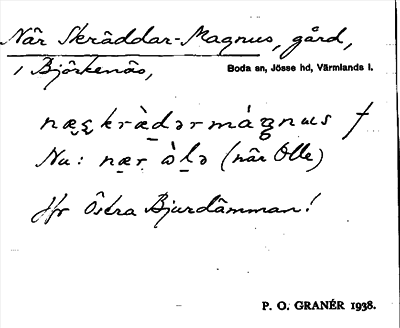 När Skräddar-Magnus, gård,
i Björkenäs,
Boda sn, Jösse hd, Värmlands l.
næʂkràdərmágnus †
Nu: nær òlə (när Olle)
Jfr Östra Bjurdämman!
P. O. GRANÉR 1938.